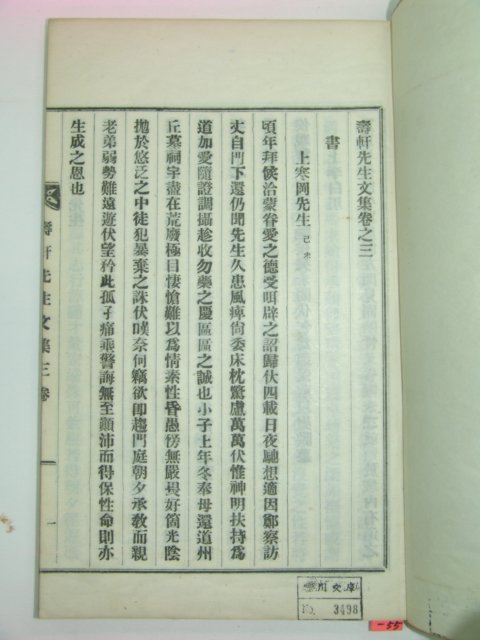 壽軒先生文集卷之三
書
上寒岡先生 己未
頃年拜候洽蒙眷愛之德受呾辟之詔歸伏四載日夜馳想適因鄭察訪
丈自門下還仍聞先生久患風痺尙委床枕驚慮萬萬伏惟神明扶持爲
道加愛隨證調攝趁收勿藥之慶區區之誠也小子上年冬奉母還道州
丘墓祠宇盡在荒廢極目悽愴難以爲情素性昏愚傍無嚴畏好箇光陰
抛於悠泛之中徒犯暴棄之誅伏嘆奈何竊欲卽趨門庭朝夕承敎而親
老弟弱勢難遠遊伏望矜此孤子痛乖警誨無至顚沛而得保性命則亦
生成之恩也
壽軒先生文集三卷
一
文庫
No. 3498
-55